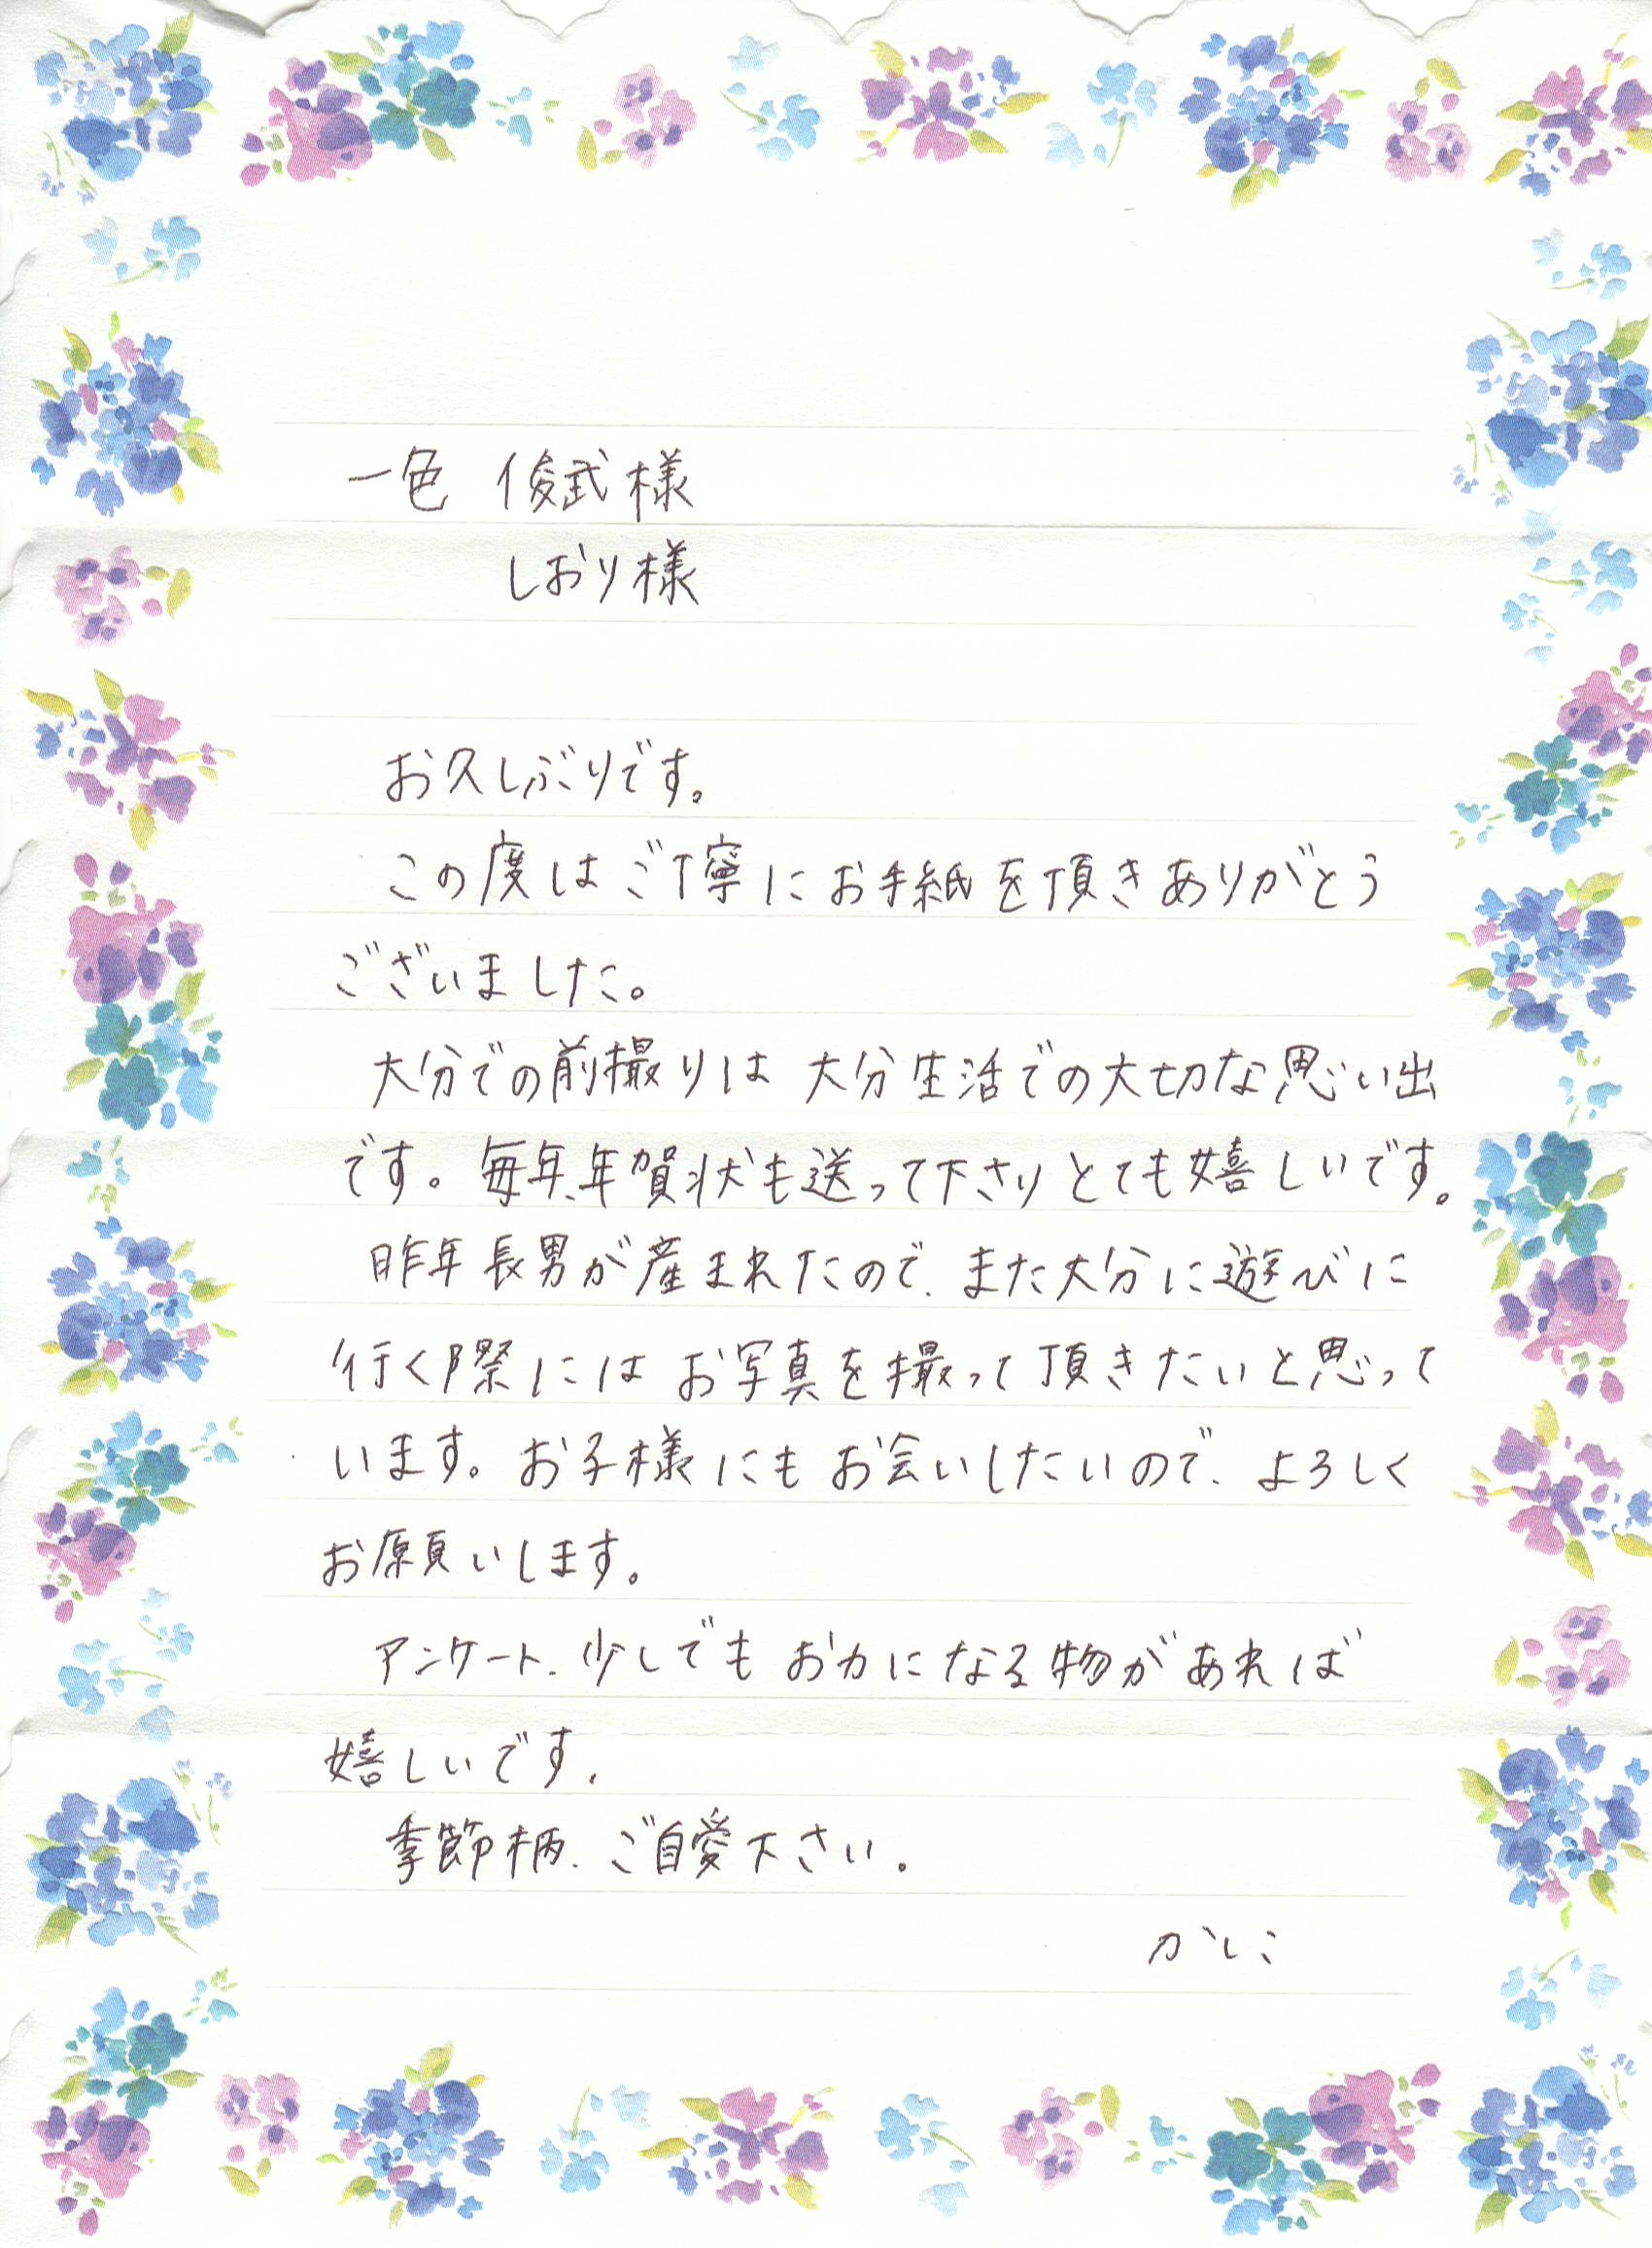 一色 俊武様
しおり様
お久しぶりです。
この度はご丁寧にお手紙を頂きありがとう
ございました。
大分での前撮りは 大分生活での大切な思い出
です。毎年、年賀状も送って下さりとても嬉しいです。
昨年長男が産まれたので、また大分に遊びに
行く際には お写真を撮って頂きたいと思って
います。お子様にもお会いしたいので、よろしく
お願いします。
アンケート、少しでもお力になる物があれば
嬉しいです。
季節柄、ご自愛下さい。
かしこ